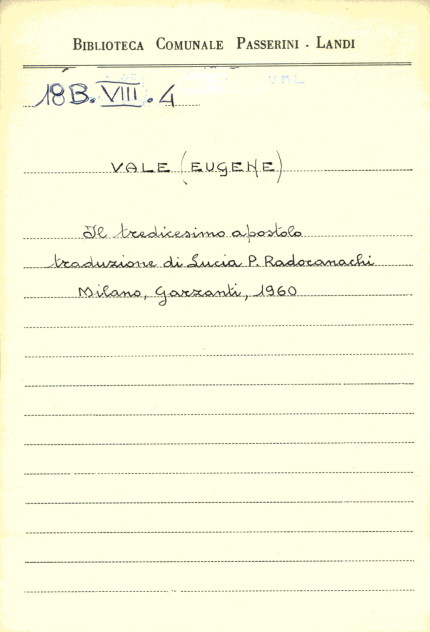 BIBLIOTECA COMUNALE PASSERINI - LANDI
VAL
18B. VIII. 4
VALE (EUGENE)
Il tredicesimo apostolo
traduzione di Lucia P. Radocanachi
Milano, Garzanti, 1960